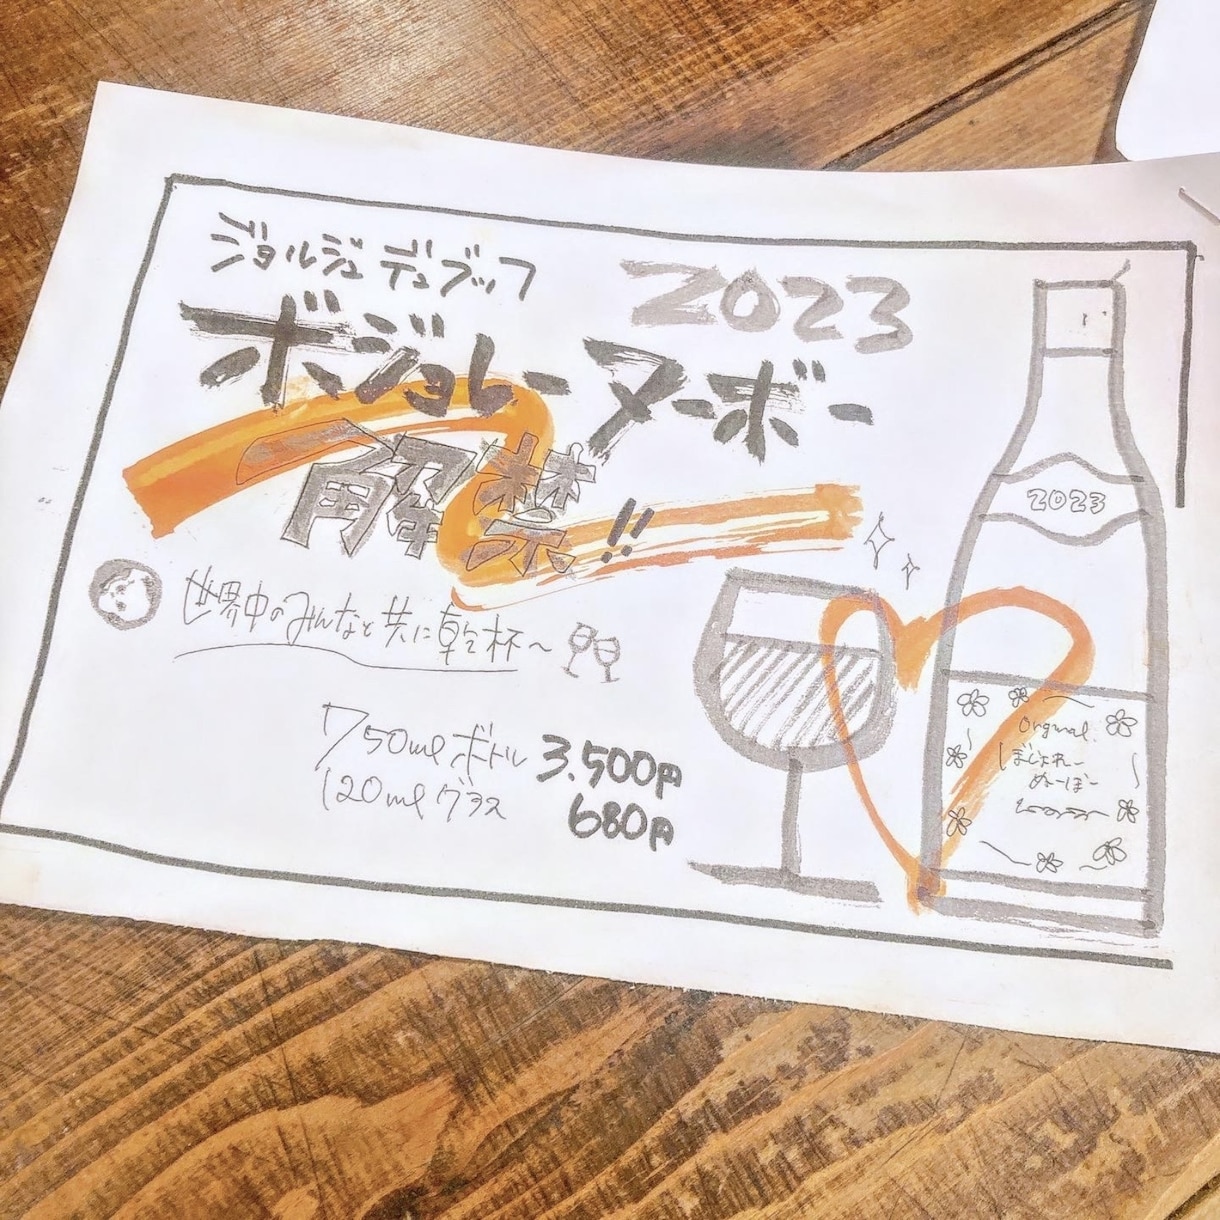 ジョルジュ デュブッフ
2023
ボジョレーヌーボー
解禁!!
世界中のみんなと共に乾杯〜
750ml ボトル 3.500円
120ml グラス 680円
2023
Original
ぼじょれー
ぬーぼー